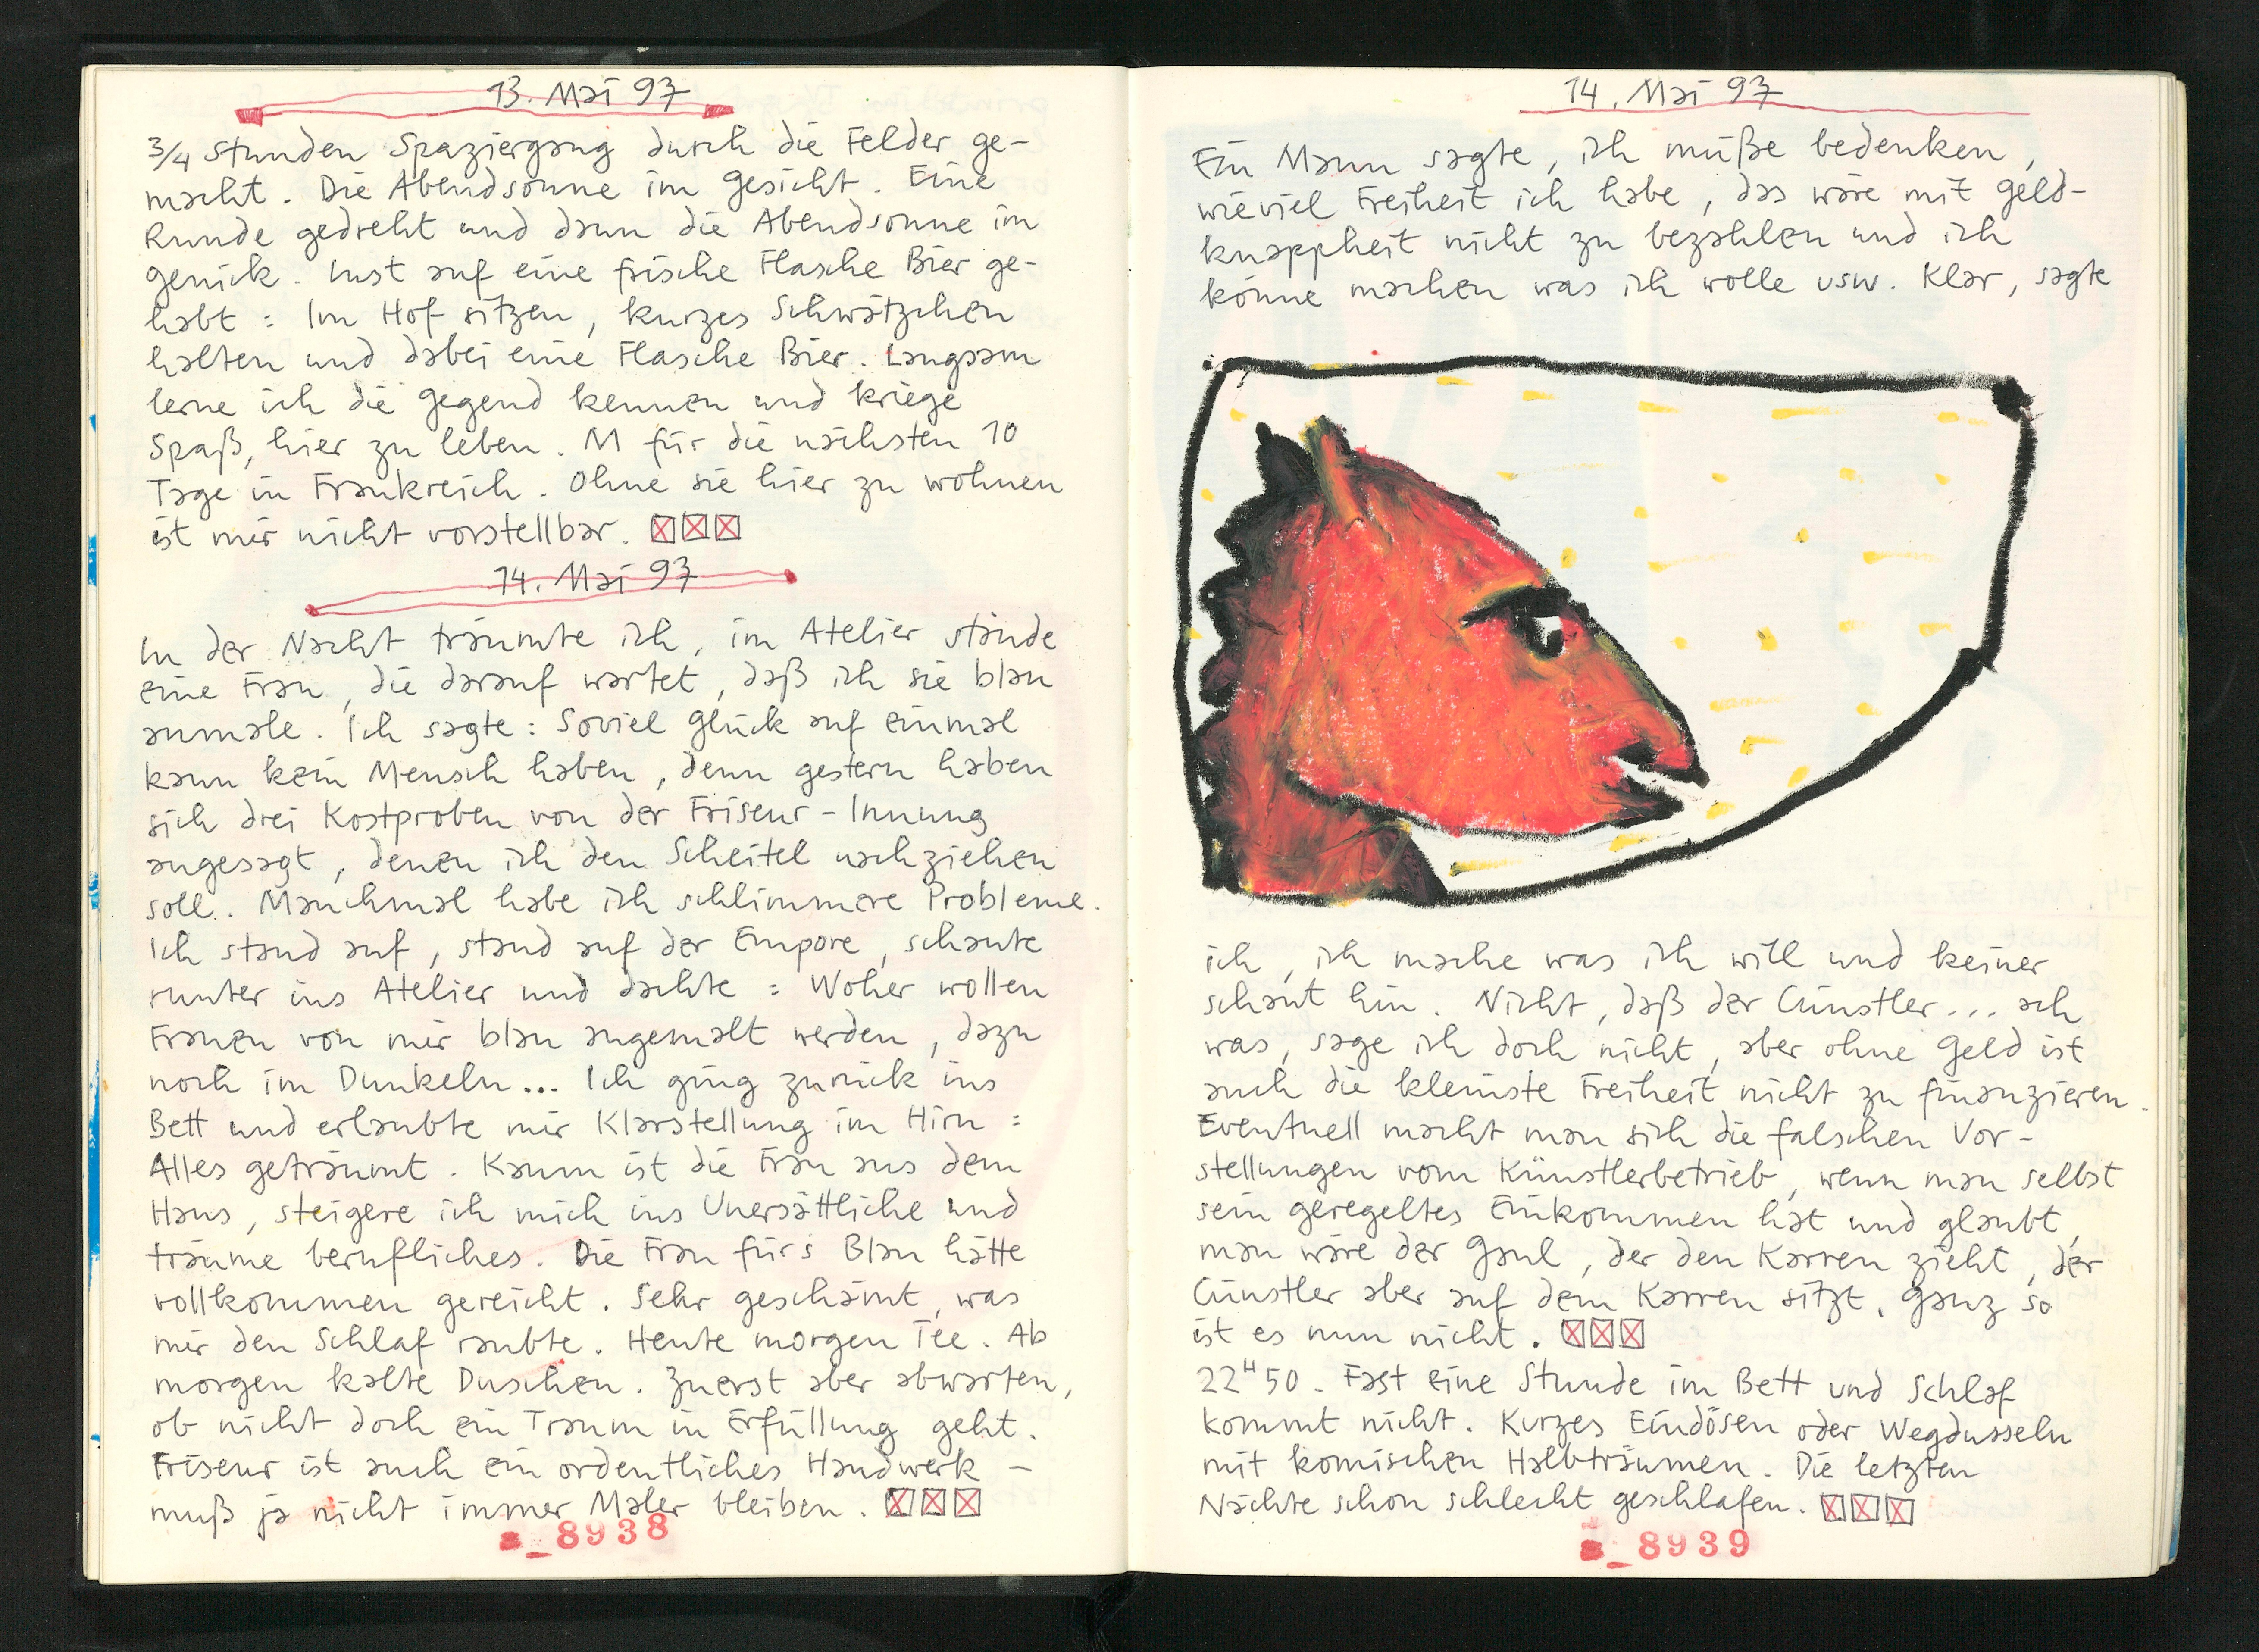 13. Mai 97
3/4 Stunden Spaziergang durch die Felder ge-
macht. Die Abendsonne im Gesicht. Eine
Runde gedreht und dann die Abendsonne im
Genick. Lust auf eine frische Flasche Bier ge-
habt: Im Hof sitzen, kurzes Schwätzchen
halten und dabei eine Flasche Bier. Langsam
lerne ich die Gegend kennen und kriege
Spaß, hier zu leben. M für die nächsten 10
Tage in Frankreich. Ohne sie hier zu wohnen
ist mir nicht vorstellbar.
14. Mai 97
In der Nacht träumte ich, im Atelier stände
eine Frau, die darauf wartet, daß ich sie blau
anmale. Ich sagte: Soviel Glück auf einmal
kann kein Mensch haben, denn gestern haben
sich drei Kostproben von der Friseur-Innung
angesagt, denen ich den Scheitel nachziehen
soll. Manchmal habe ich schlimmere Probleme.
Ich stand auf, stand auf der Empore, schaute
runter ins Atelier und dachte: Woher wollen
Frauen von mir blau angemalt werden, dazu
noch im Dunkeln... Ich ging zurück ins
Bett und erlaubte mir Klarstellung im Hirn:
Alles geträumt. Kaum ist die Frau aus dem
Haus, steigere ich mich ins Unersättliche und
träume berufliches. Die Frau für's Blau hätte
vollkommen gereicht. Sehr geschämt, was
mir den Schlaf raubte. Heute morgen Tee. Ab
morgen kalte Duschen. Zuerst aber abwarten,
ob nicht doch ein Traum in Erfüllung geht.
Friseur ist auch ein ordentliches Handwerk –
muß ja nicht immer Maler bleiben.
8938
14. Mai 97
Ein Mann sagte, ich müße bedenken,
wieviel Freiheit ich habe, das wäre mit Geld-
knappheit nicht zu bezahlen und ich
könne machen was ich wolle usw. Klar, sagte
ich, ich mache was ich will und keiner
schaut hin. Nicht, daß der Cünstler... ach
was, sage ich doch nicht, aber ohne Geld ist
auch die kleinste Freiheit nicht zu finanzieren.
Eventuell macht man sich die falschen Vor-
stellungen vom Künstlerbetrieb, wenn man selbst
sein geregeltes Einkommen hat und glaubt,
man wäre der Gaul, der den Karren zieht, der
Cünstler aber auf dem Karren sitzt. Ganz so
ist es nun nicht.
22H50. Fast eine Stunde im Bett und Schlaf
kommt nicht. Kurzes Eindösen oder Wegdusseln
mit komischen Halbträumen. Die letzten
Nächte schon schlecht geschlafen.
8939